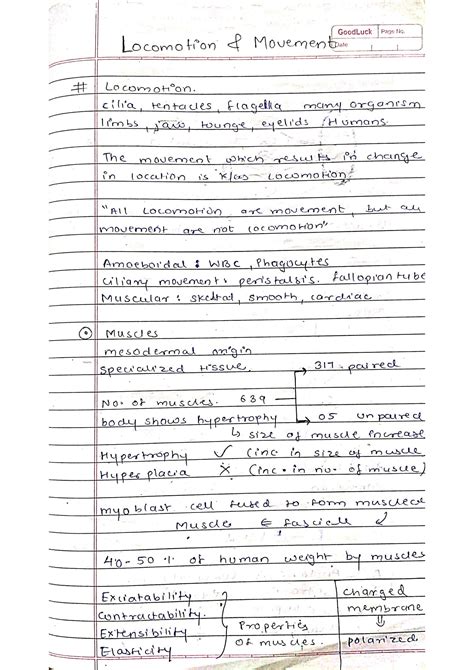 GoodLuck Page No.
Date
Locomotion & Movement
# Locomotion.
cilia, tentacles, flagella many organism
limbs, jaw, tounge, eyelids / Humans
The movement which results in change
in location is k/as Locomotion.
"All Locomotion are movement, but all
movement are not locomotion"
Amoeboidal : WBC, Phagocytes
Ciliary movement : peristalsis. fallopian tube
Muscular : skeltal, smooth, cardiac
⊙ Muscles
mesodermal origin
specialized tissue.
317 - paired
No. of muscles. 639
body shows hypertrophy
05 unpaired
↳ size of muscle increase
Hypertrophy ✓ (inc in size of muscle
Hyper placia ✗ (inc. in no. of muscle)
myoblast cell fused to form muscle
Muscle ← fascicle
40-50 % of human weight by muscles
Exciatability
Contractability.
Extensibility
Elasticity
Properties
of muscles.
charged
membrane
↓
polarized